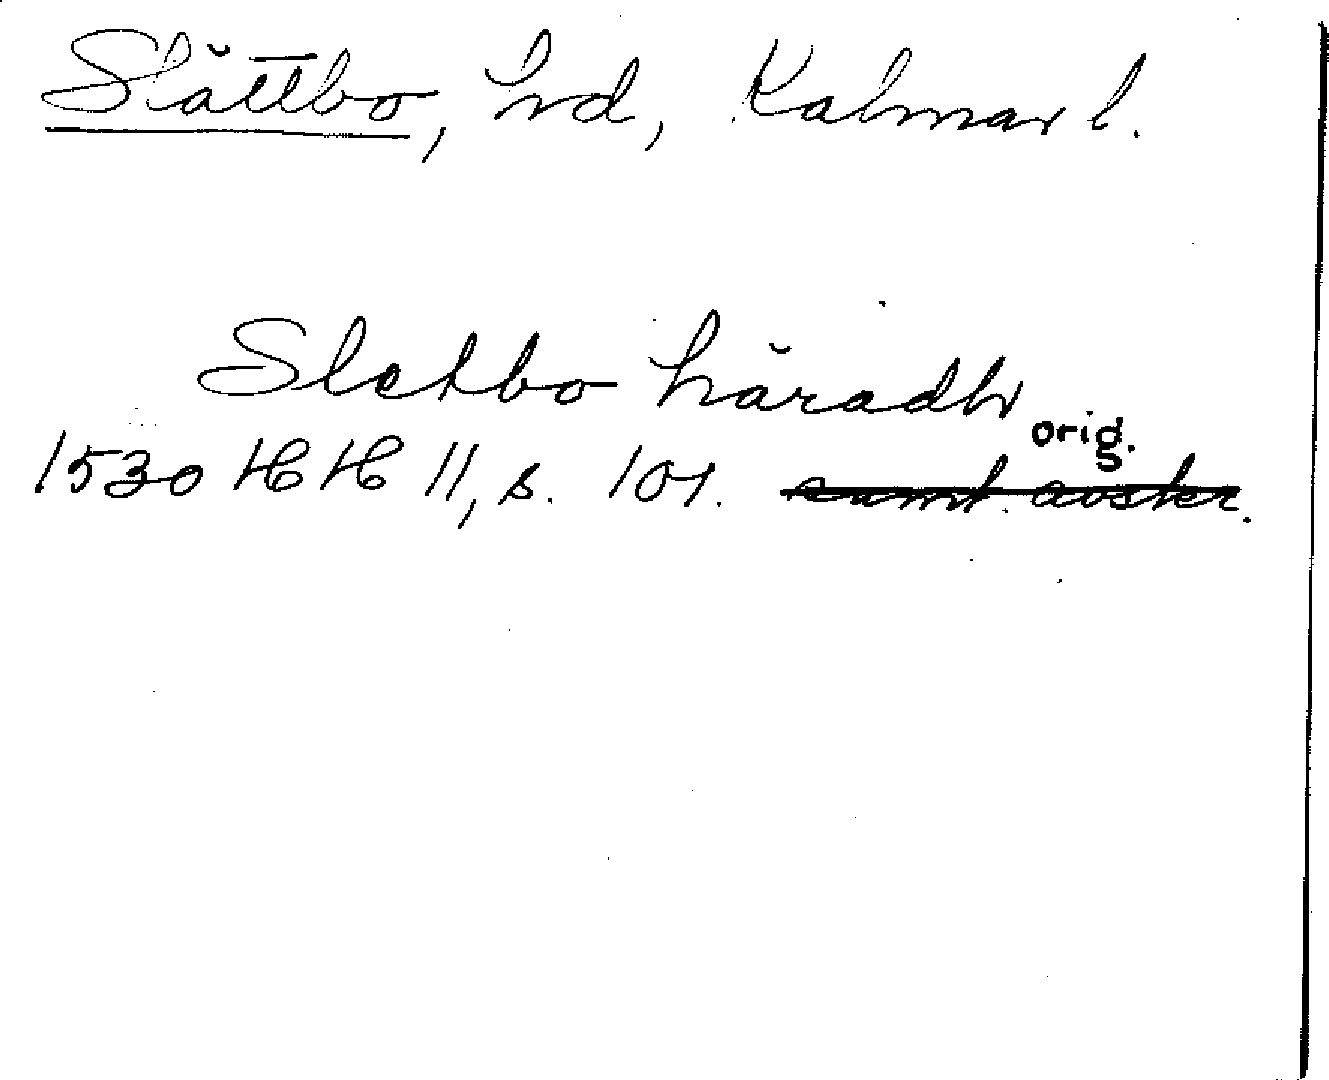 Slättbo, hrd, Kalmar l.
Sletbo häradh
orig.
1530 HH 11, s. 101. samt. avskr.